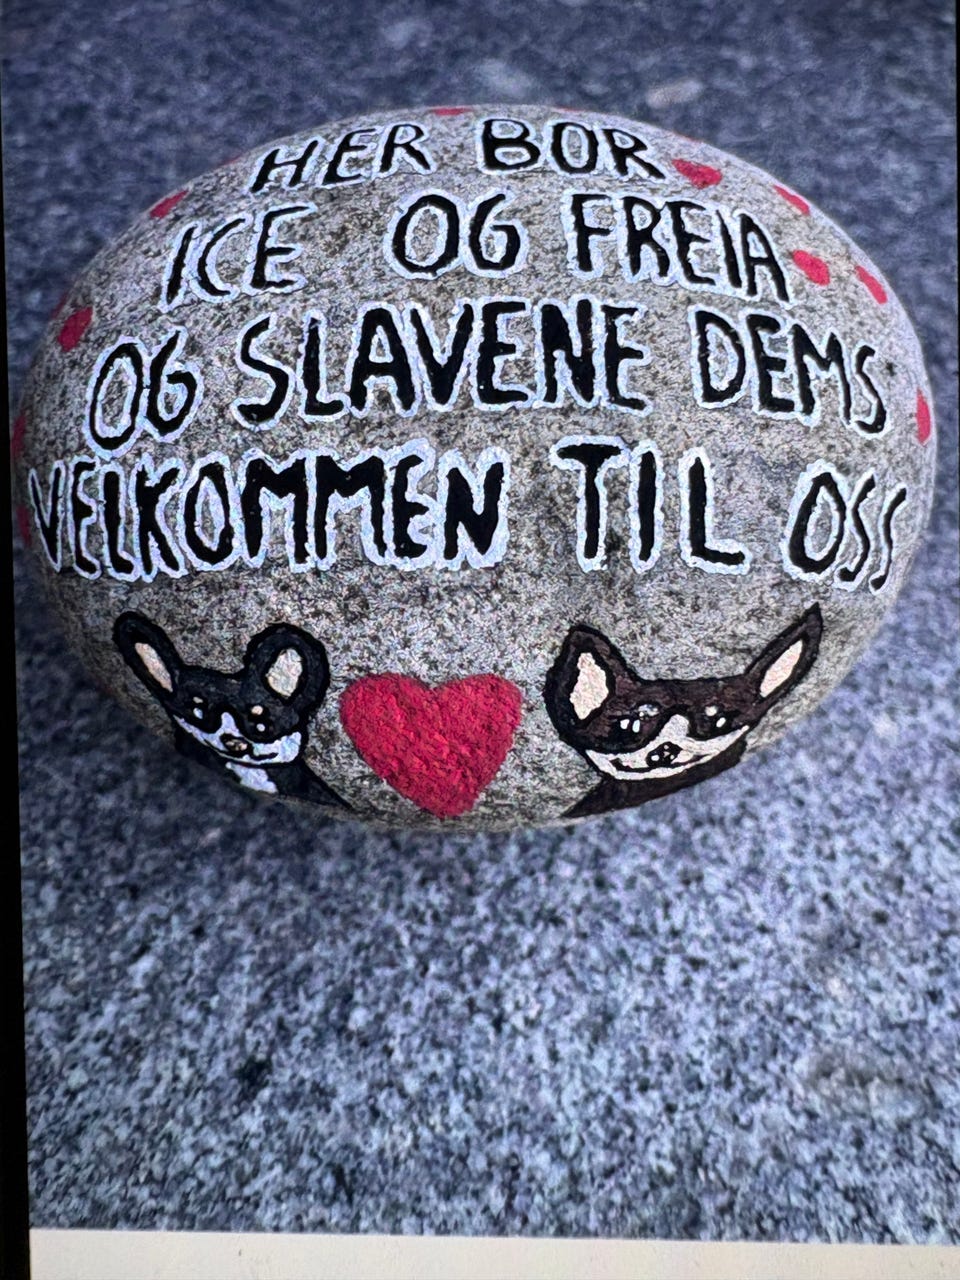 HER BOR
ICE OG FREIA
OG SLAVENE DEMS
VELKOMMEN TIL OSS